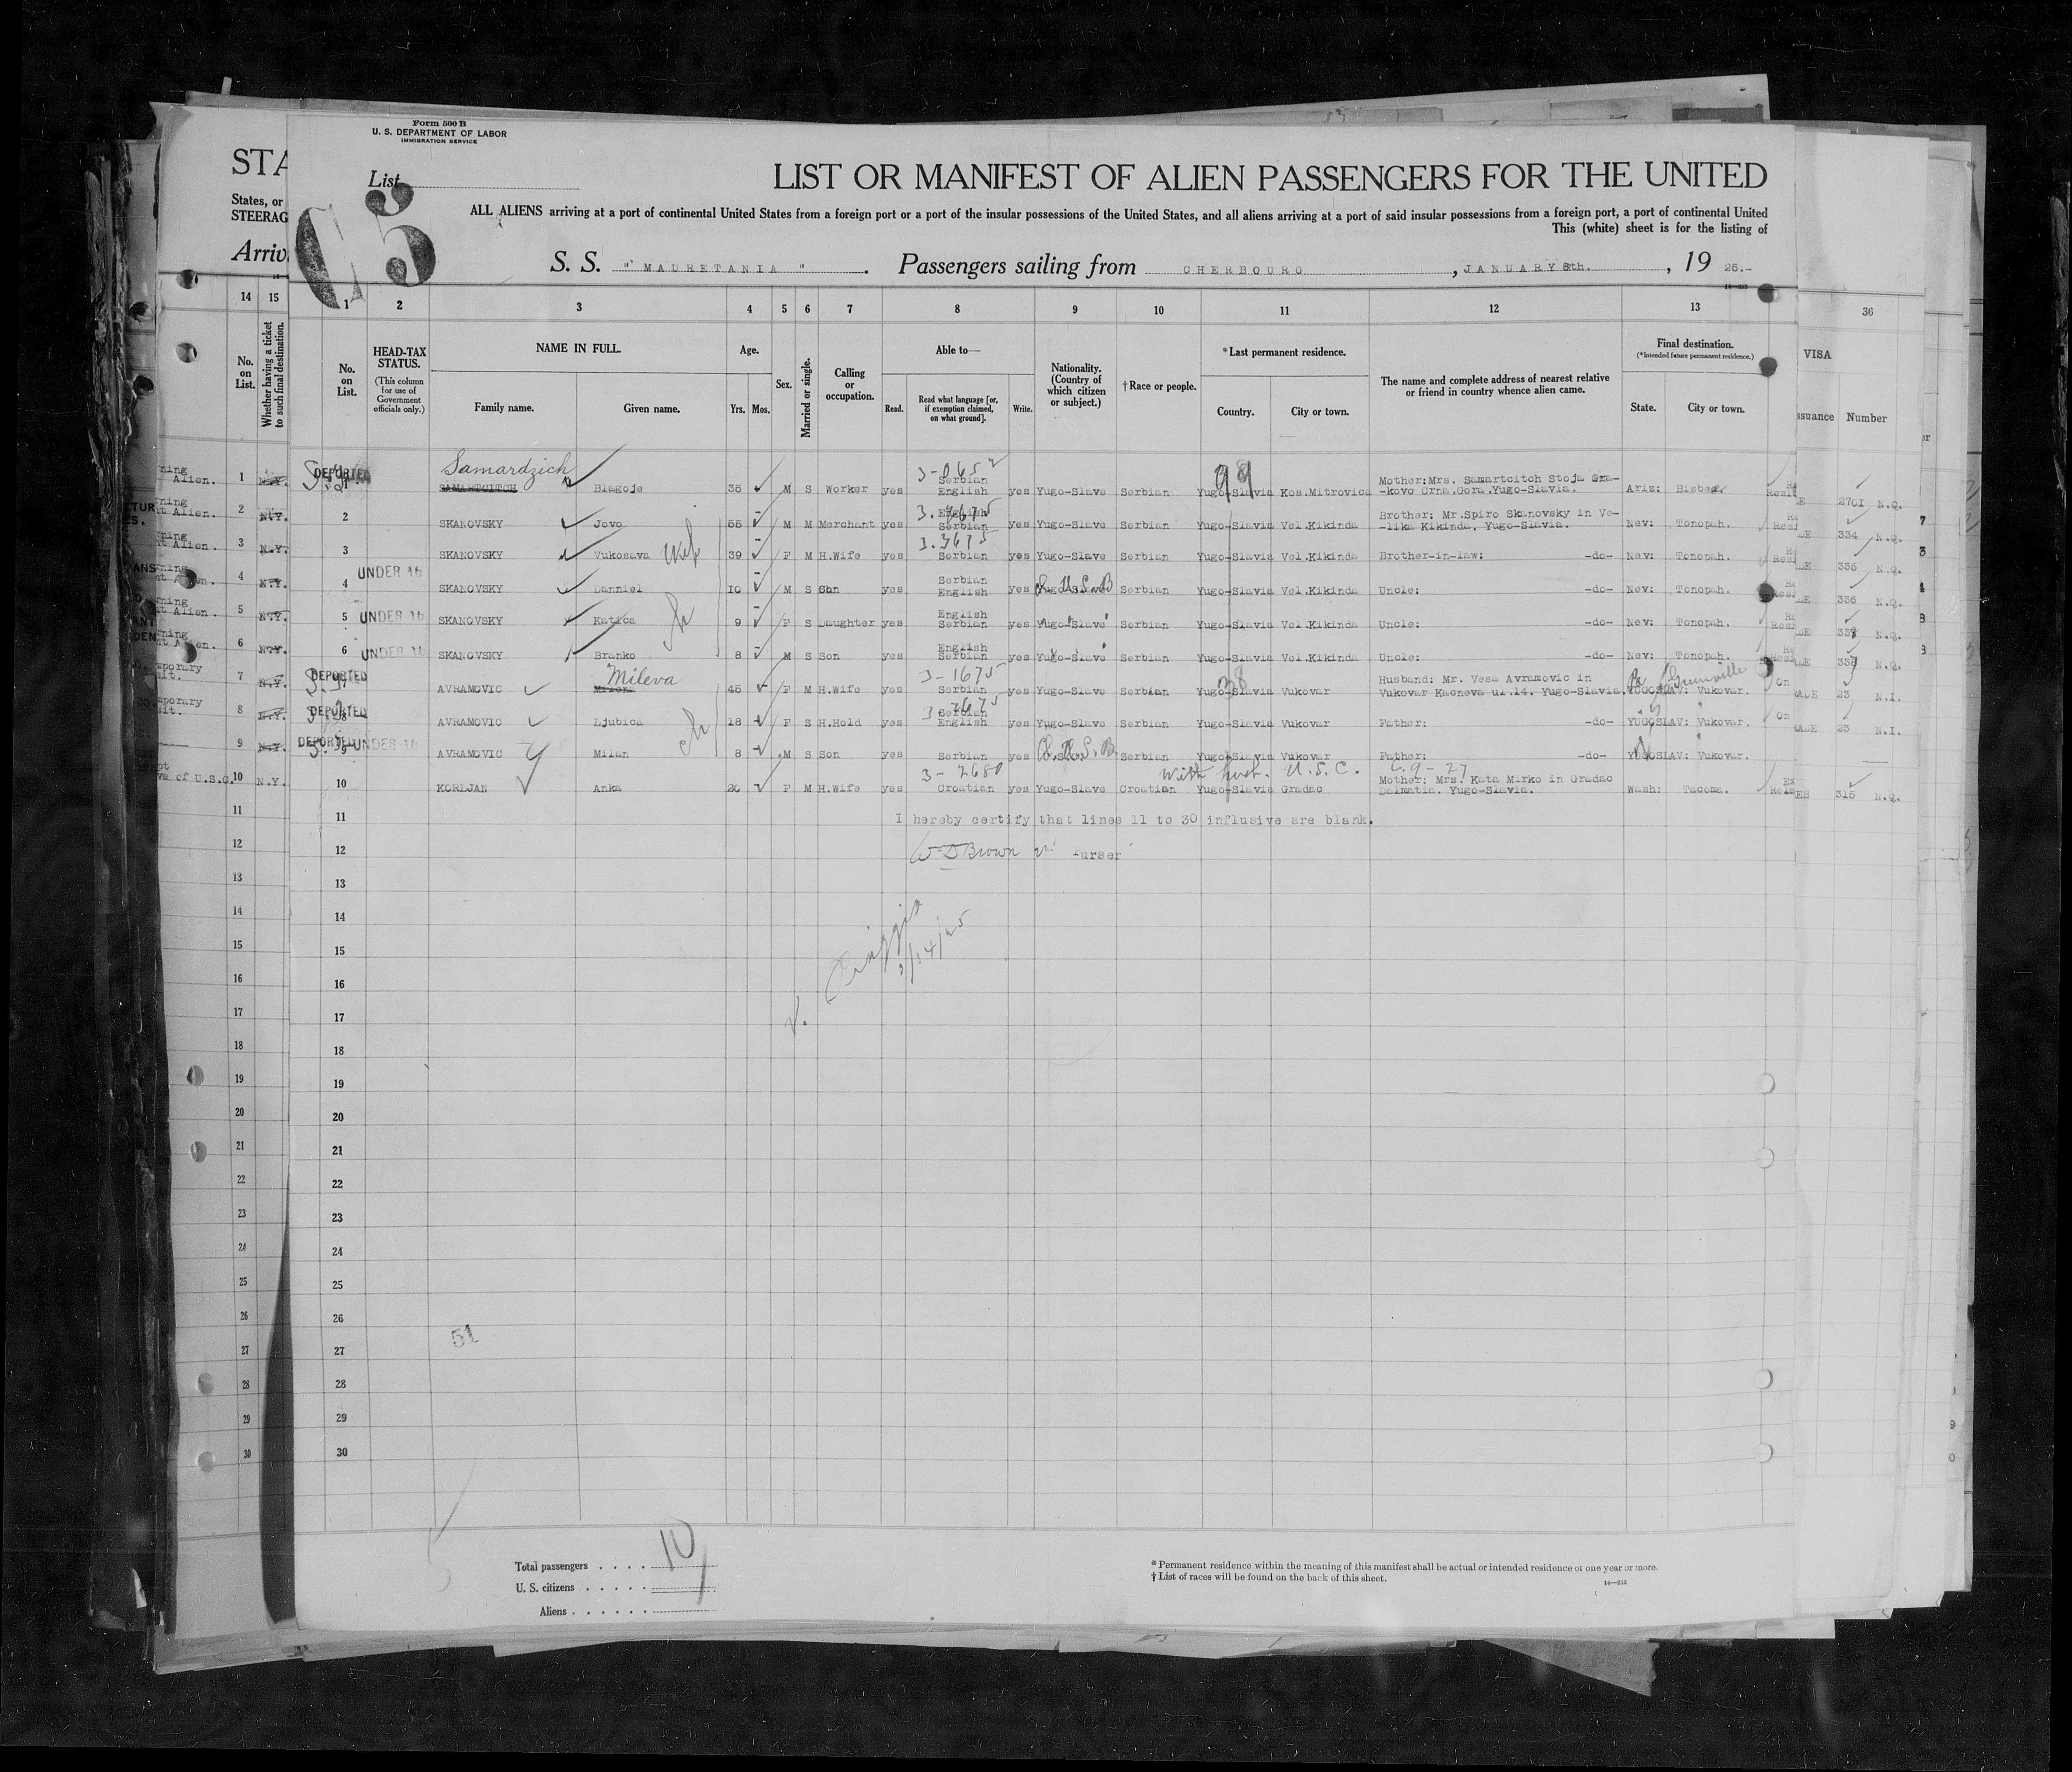 Form 500 B
U. S. DEPARTMENT OF LABOR
IMMIGRATION SERVICE
STA
List
LIST OR MANIFEST OF ALIEN PASSENGERS FOR THE UNITED
States, or
STEERAG
ALL ALIENS arriving at a port of continental United States from a foreign port or a port of the insular possessions of the United States, and all aliens arriving at a port of said insular possessions from a foreign port, a port of continental United
This (white) sheet is for the listing of
Arriv
S. S. "MAURETANIA". Passengers sailing from CHERBOURG, JANUARY 8th., 19 25.-
14 15 1 2 3 4 5 6 7 8 9 10 11 12 13 36
No. on List. Whether having a ticket to such final destination.
No. on List.
HEAD-TAX STATUS.
(This column for use of Government officials only.)
NAME IN FULL.
Family name. Given name.
Age.
Yrs. Mos.
Sex.
Married or single.
Calling or occupation.
Able to—
Read. Read what language [or, if exemption claimed, on what ground]. Write.
Nationality. (Country of which citizen or subject.)
†Race or people.
*Last permanent residence.
Country. City or town.
The name and complete address of nearest relative or friend in country whence alien came.
Final destination.
(*Intended future permanent residence.)
State. City or town.
VISA
ssuance Number
DEPORTED Samardzich 99
1 SAMARTCITCH Blagoje 35 M S Worker yes Serbian English yes Yugo-Slave Serbian Yugo-Slavia Kos.Mitrovica Mother:Mrs. Samartcitch Stoja Gra-
-kovo Crna.Gora.Yugo-Slavia. Ariz: Bisbee. 2701 N.Q.
2 SKANOVSKY Jovo 55 M M Merchant yes English Serbian yes Yugo-Slave Serbian Yugo-Slavia Vel.Kikinda Brother: Mr.Spiro Skanovsky in Ve-
-lika Kikinda. Yugo-Slavia. Nev: Tonopah. 334 N.Q.
3 SKANOVSKY Vukosava 39 F M H.Wife yes Serbian yes Yugo-Slave Serbian Yugo-Slavia Vel.Kikinda Brother-in-law: -do- Nev: Tonopah. 335 N.Q.
UNDER 16
4 SKANOVSKY Danniel 10 M S Son yes Serbian English yes Serbian Yugo-Slavia Vel.Kikinda Uncle: -do- Nev: Tonopah. 336 N.Q.
5 UNDER 16 SKANOVSKY Katica 9 F S Daughter yes English Serbian yes Yugo-Slave Serbian Yugo-Slavia Vel.Kikinda Uncle: -do- Nev: Tonopah. N.Q.
6 UNDER 16 SKANOVSKY Branko 8 M S Son yes English Serbian yes Yugo-Slave Serbian Yugo-Slavia Vel.Kikinda Uncle: -do- Nev: Tonopah. N.Q.
DEPORTED Mileva 3-1675 Pa Greenville
7 AVRAMOVIC 45 F M H.Wife yes Serbian yes Yugo-Slave Serbian Yugo-Slavia Vukovar Husband: Mr. Vesa Avramovic in
Vukovar Kacneva ul.14. Yugo-Slavia. YUGOSLAV: Vukovar. 23 N.I.
DEPORTED
8 AVRAMOVIC Ljubica 18 F S H.Hold yes Serbian English yes Yugo-Slave Serbian Yugo-Slavia Vukovar Father: -do- YUGOSLAV: Vukovar. 23 N.I.
DEPORTED UNDER 16
9 AVRAMOVIC Milan 8 M S Son yes Serbian yes Serbian Yugo-Slavia Vukovar Father: -do- YUGOSLAV: Vukovar.
3-2680 With husb. U.S.C.
10 KORLJAN Anka 20 F M H.Wife yes Croatian yes Yugo-Slave Croatian Yugo-Slavia Gradac Mother: Mrs. Kata Mirko in Gradac
Dalmatia. Yugo-Slavia. Wash: Tacoma. 315 N.Q.
11 I hereby certify that lines 11 to 30 influsive are blank.
12 W D Brown Purser
13
14
15
16
17
18
19
20
21
22
23
24
25
26
51
27
28
29
30
Total passengers 10
U. S. citizens
Aliens
* Permanent residence within the meaning of this manifest shall be actual or intended residence of one year or more.
† List of races will be found on the back of this sheet.
14—213